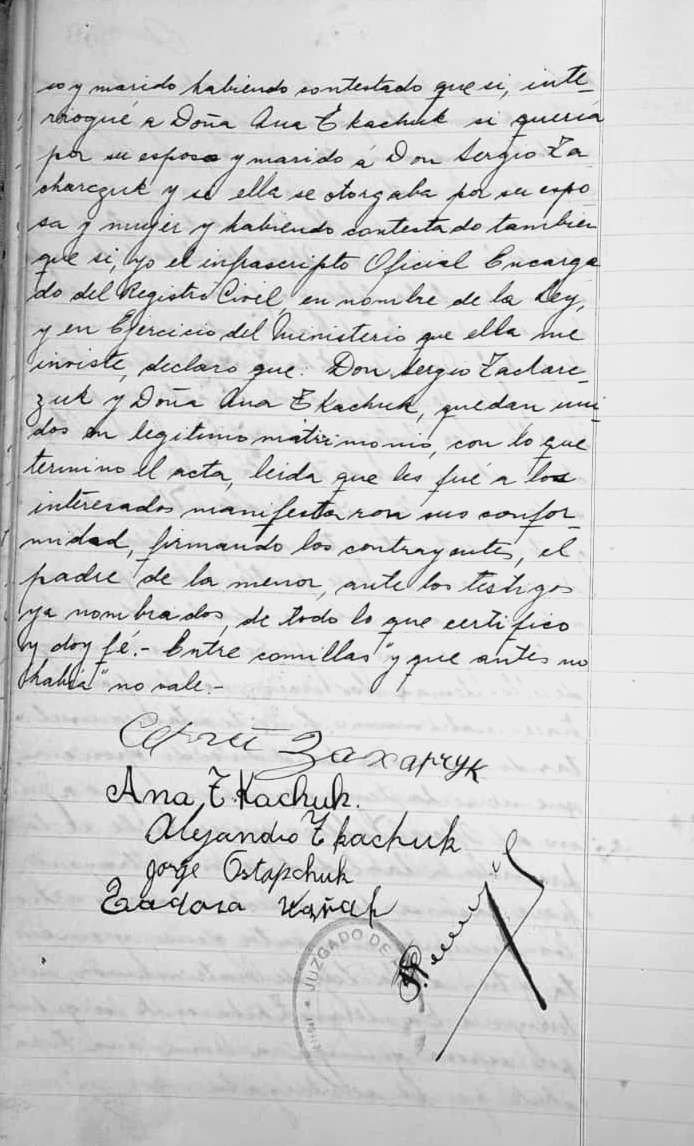 so y marido habiendo contestado que si, inte-
rrogué a Doña Ana Tkachuk si quería
por su esposo y marido á Don Sergio Za-
charczuk y si ella se otorgaba por su espo-
sa y mujer y habiendo contestado tambien
que si, yo el infrascripto Oficial Encarga
do del Registro Civil en nombre de la Ley,
y en Ejercicio del Ministerio que ella me
inviste, declaro que: Don Sergio Zacharc-
zuk y Doña Ana Tkachuk, quedan uni-
dos en legitimo matrimonio, con lo que
termino el acta, leida que les fué a los
interesados manifestaron sus confor-
midad, firmando los contrayentes, el
padre de la menor, ante los testigos
ya nombrados, de todo lo que certifico
y doy fé.- Entre comillas "y que antes no
habia" no vale.-
Сергій Захарчук
Ana Tkachuk.
Alejandro Tkachuk
Jorge Ostapchuk
JUZGADO DE